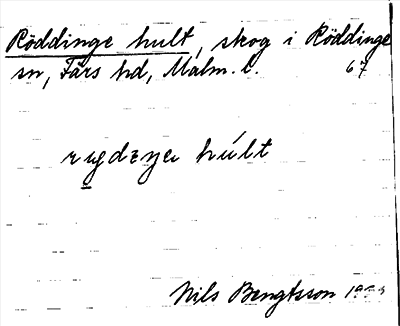 Röddinge hult, skog i Röddinge
sn, Färs hd, Malm. l. 67
hult
Nils Bengtsson